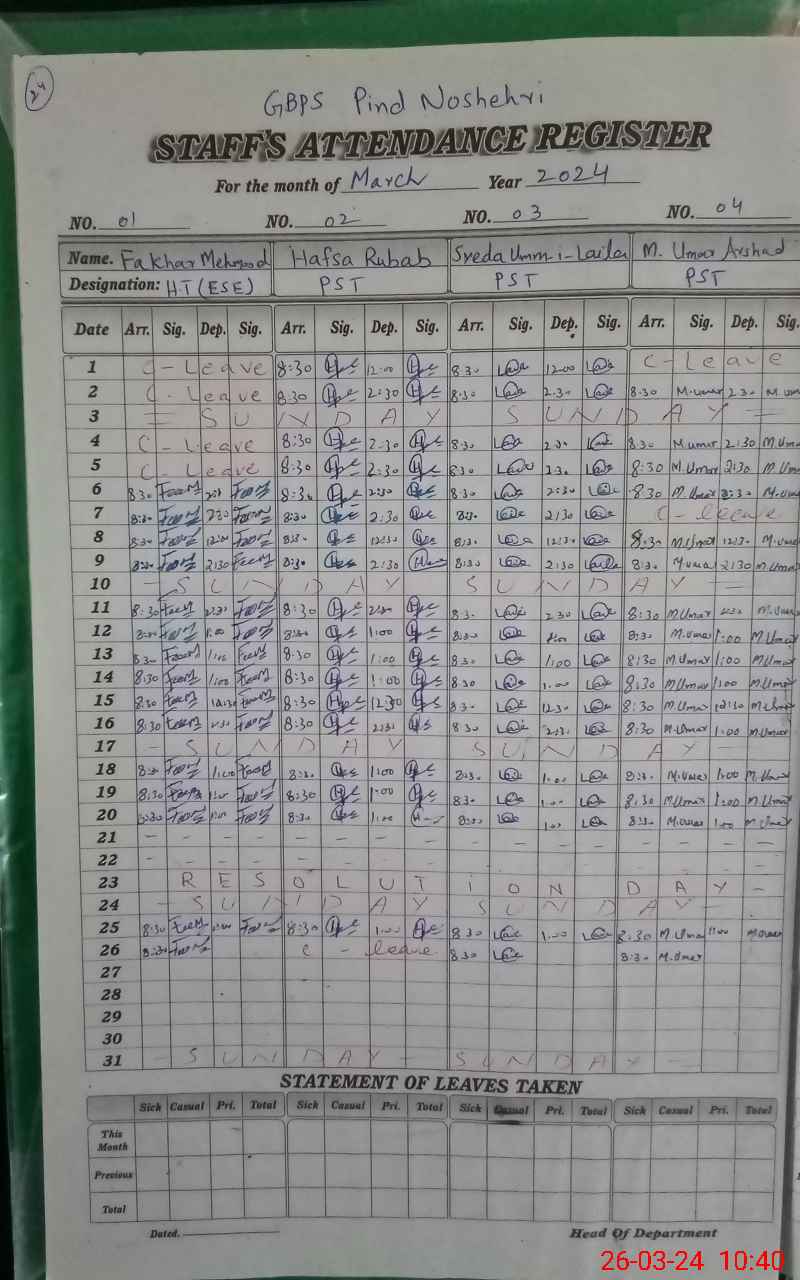 24
GBPS Pind Noshehri
STAFF'S ATTENDANCE REGISTER
For the month of March Year 2024
NO. 01 NO. 02 NO. 03 NO. 04
Name. Fakhar Mehmood Hafsa Rubab Syeda Umm-i-Laila M. Umar Arshad
Designation: H.T (ESE) PST PST PST
Date Arr. Sig. Dep. Sig. Arr. Sig. Dep. Sig. Arr. Sig. Dep. Sig. Arr. Sig. Dep. Sig.
1 C-Leave 8:30 12:00 8:30 12:00 C-Leave
2 C-Leave 8:30 2:30 8:30 2:30 8:30 M.umar 2:30 M.um
3 = SUNDAY SUNDAY =
4 C-Leave 8:30 2:30 8:30 2:30 8:30 M umar 2:30 M.Uma
5 C-Leave 8:30 2:30 8:30 2:30 8:30 M.Umar 2:30 M.Uma
6 8:30 8:30 2:30 8:30 2:30 8:30 M.Umar 2:30 M.uma
7 8:30 2:30 8:30 2:30 8:30 2:30 C-leave
8 8:30 12:30 8:30 12:30 8:30 12:30 8:30 M.Umar 12:30 M.uma
9 8:30 2:30 8:30 2:30 8:30 2:30 8:30 M umar 2:30 M.Uma
10 - SUNDAY SUNDAY =
11 8:30 2:30 8:30 2:30 8:30 2:30 8:30 M.Umar 2:30 M.Uma
12 8:30 1:00 8:30 1:00 8:30 8:30 M.umar 1:00 M.Umar
13 8:30 1:00 8:30 1:00 8:30 1:00 8:30 M.Umar 1:00 M.Umar
14 8:30 1:00 8:30 1:00 8:30 1:00 8:30 M.Umar 1:00 M.Umar
15 8:30 12:30 8:30 12:30 8:30 12:30 8:30 M.Umar 12:30 M.Umar
16 8:30 2:30 8:30 2:30 8:30 2:30 8:30 M.Umar 1:00 M.Umar
17 - SUNDAY SUNDAY -
18 8:30 1:00 8:30 1:00 8:30 1:00 8:30 M.Umar 1:00 M.Umar
19 8:30 1:00 8:30 1:00 8:30 1:00 8:30 M.Umar 1:00 M.Umar
20 8:30 1:00 8:30 1:00 8:30 1:00 8:30 M.umar 1:00 M.Umar
21 - - - - - - - - - - - -
22 - - - - - - - - - - - -
23 RESOLUTION DAY -
24 - SUNDAY SUNDAY -
25 8:30 1:00 8:30 1:00 8:30 1:00 8:30 M.Uma 1:00 M.umar
26 8:30 C-leave 8:30 8:30 M.Umar
27
28
29
30
31 - SUNDAY - SUNDAY -
STATEMENT OF LEAVES TAKEN
Sick Casual Pri. Total Sick Casual Pri. Total Sick Casual Pri. Total Sick Casual Pri. Total
This
Month
Previous
Total
Dated. Head Of Department
26-03-24 10:40